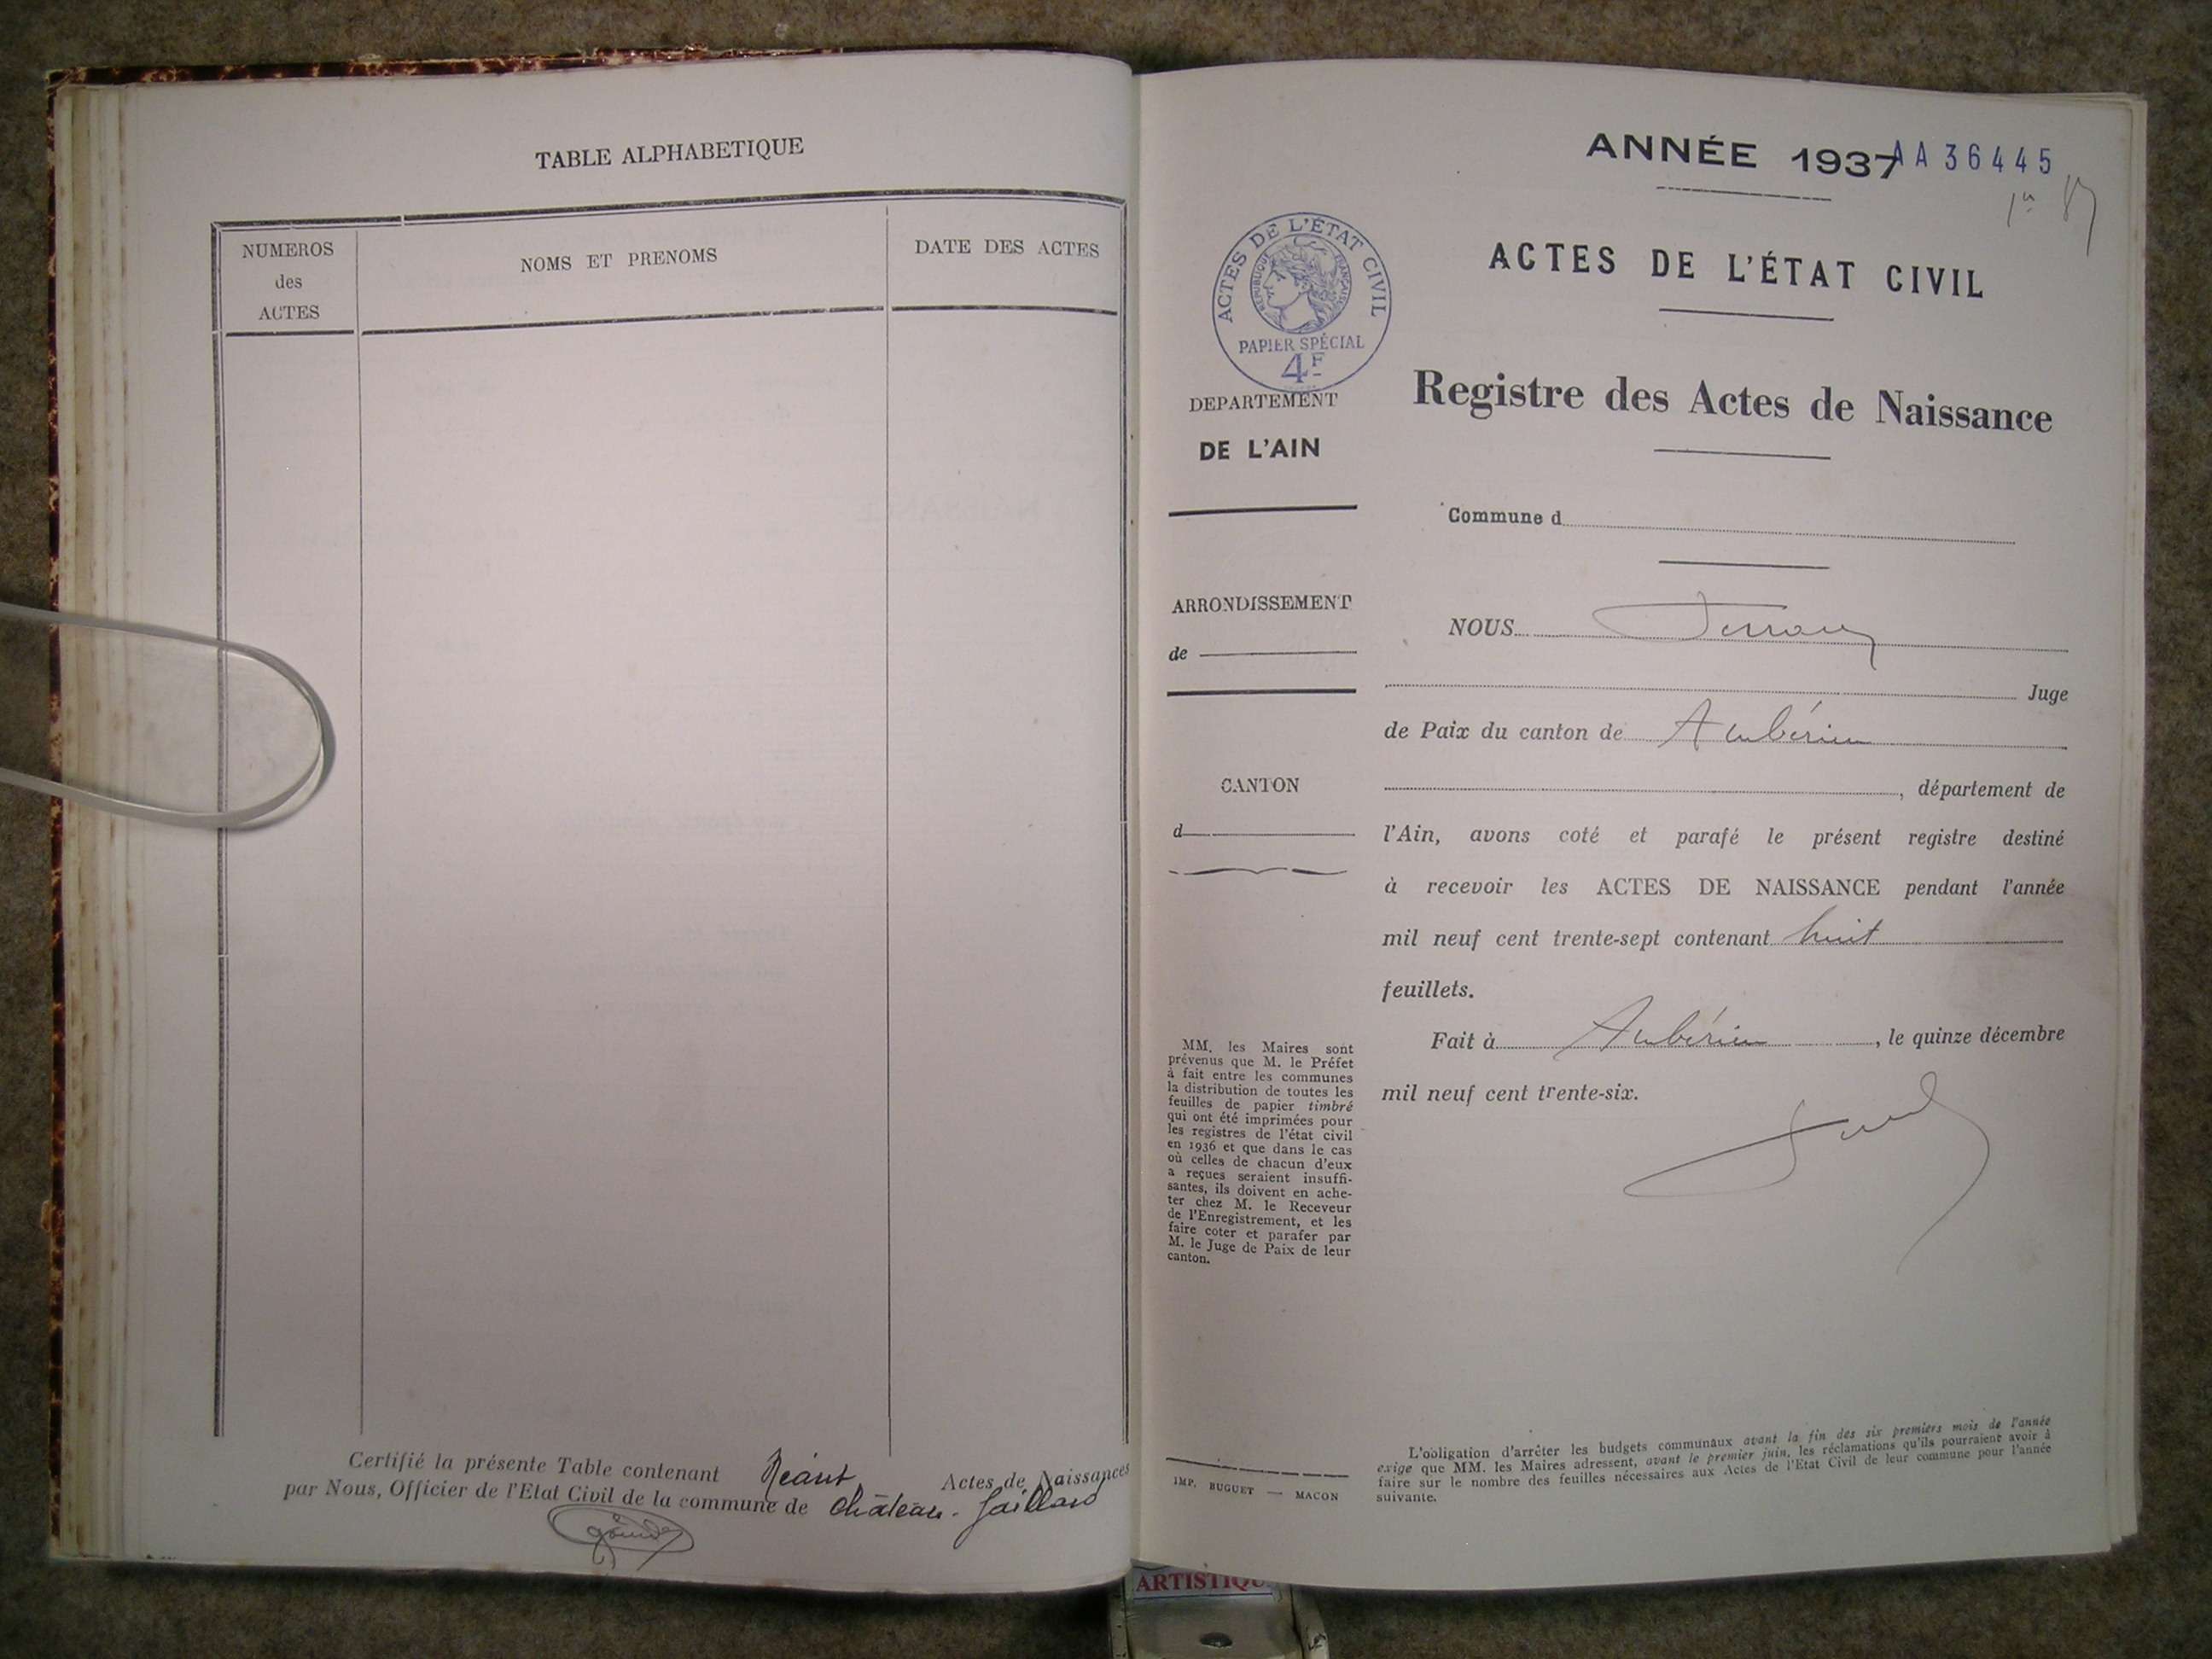 TABLE ALPHABETIQUE
NUMEROS
des
ACTES
NOMS ET PRENOMS
DATE DES ACTES
Certifié la présente Table contenant Néant Actes de Naissances
par Nous, Officier de l'Etat Civil de la commune de Château-Gaillard
ANNÉE 1937 AA 36445
ACTES DE L'ÉTAT CIVIL
RÉPUBLIQUE FRANÇAISE
PAPIER SPÉCIAL
4F
DEPARTEMENT
DE L'AIN
ARRONDISSEMENT
de
CANTON
d
MM. les Maires sont
prévenus que M. le Préfet
à fait entre les communes
la distribution de toutes les
feuilles de papier timbré
qui ont été imprimées pour
les registres de l'état civil
en 1936 et que dans le cas
où celles de chacun d'eux
a reçues seraient insuffi-
santes, ils doivent en ache-
ter chez M. le Receveur
de l'Enregistrement, et les
faire coter et parafer par
M. le Juge de Paix de leur
canton.
IMP. BUGUET — MACON
ACTES DE L'ÉTAT CIVIL
Registre des Actes de Naissance
Commune d
NOUS
Juge
de Paix du canton de Ambérieu
, département de
l'Ain, avons coté et parafé le présent registre destiné
à recevoir les ACTES DE NAISSANCE pendant l'année
mil neuf cent trente-sept contenant huit
feuillets.
Fait à Ambérieu, le quinze décembre
mil neuf cent trente-six.
L'obligation d'arrêter les budgets communaux avant la fin des six premiers mois de l'année
exige que MM. les Maires adressent, avant le premier juin, les réclamations qu'ils pourraient avoir à
faire sur le nombre des feuilles nécessaires aux Actes de l'Etat Civil de leur commune pour l'année
suivante.